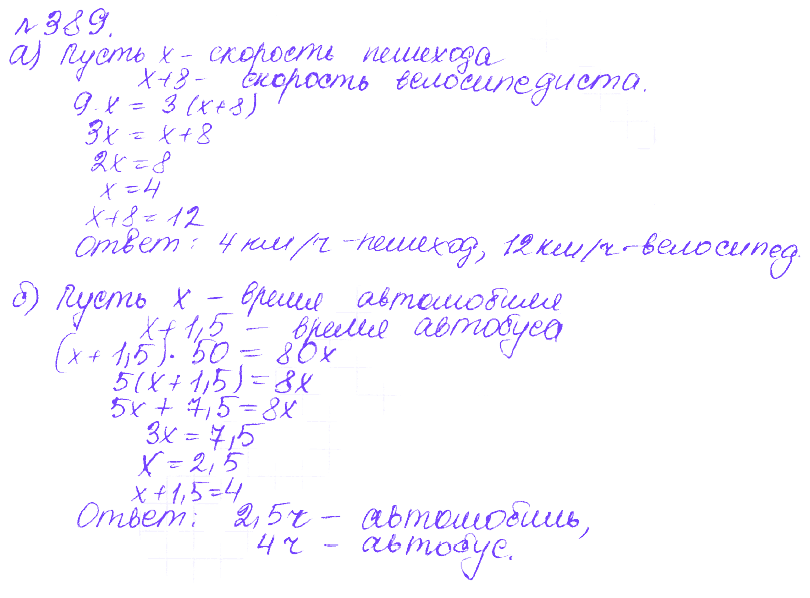 №389.
а) Пусть х - скорость пешехода
х+8 - скорость велосипедиста.
9·х = 3(х+8)
3х = х+8
2х = 8
х = 4
х+8 = 12
Ответ: 4 км/ч - пешеход, 12 км/ч - велосипед.
б) Пусть х - время автомобиля
х+1,5 - время автобуса
(х+1,5)·50 = 80х
5(х+1,5) = 8х
5х + 7,5 = 8х
3х = 7,5
х = 2,5
х+1,5=4
Ответ: 2,5ч - автомобиль,
4ч - автобус.